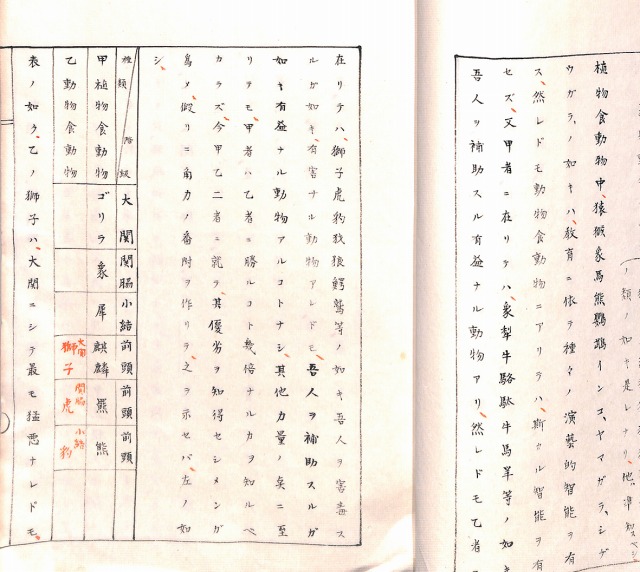 ノ類ノ如キ是レナリ、他ハ準知スベシ
植物食動物中、猿猴象馬熊鸚鵡インコ、ヤマガラ、シジ
ウガラ、ノ如キハ、教育ニ依テ種々ノ演藝的智能ヲ有
ス、然レドモ動物食動物ニアリテハ、斯カル智能ヲ有
セズ、又甲者ニ在リテハ、象犁牛駱駄牛馬羊等ノ如キ
吾人ヲ補助スル有益ナル動物アリ、然レドモ乙者ニ
在リテハ、獅子虎豹狄狼鰐鷲等ノ如キ吾人ヲ害毒ス
ルガ如キ、有害ナル動物アレドモ、吾人ヲ補助スルガ
如キ有益ナル動物アルコトナシ、其他力量ノ点ニ至
リテモ、甲者ハ乙者ニ勝ルコト幾倍ナルカヲ知ルベ
カラズ、今甲乙二者ニ就テ其優劣ヲ知得セシメンガ
為メ、假リニ角力ノ番附ヲ作リテ、之ヲ示セバ、左ノ如
シ、
種類 階級 大関 関脇 小結 前頭 前頭 前頭
甲植物食動物 ゴリラ 象 犀 麒麟 羆 熊
乙動物食動物 大関 獅子 関脇 虎 小結 豹
表ノ如ク、乙ノ獅子ハ、大関ニシテ最モ猛悪ナレドモ、